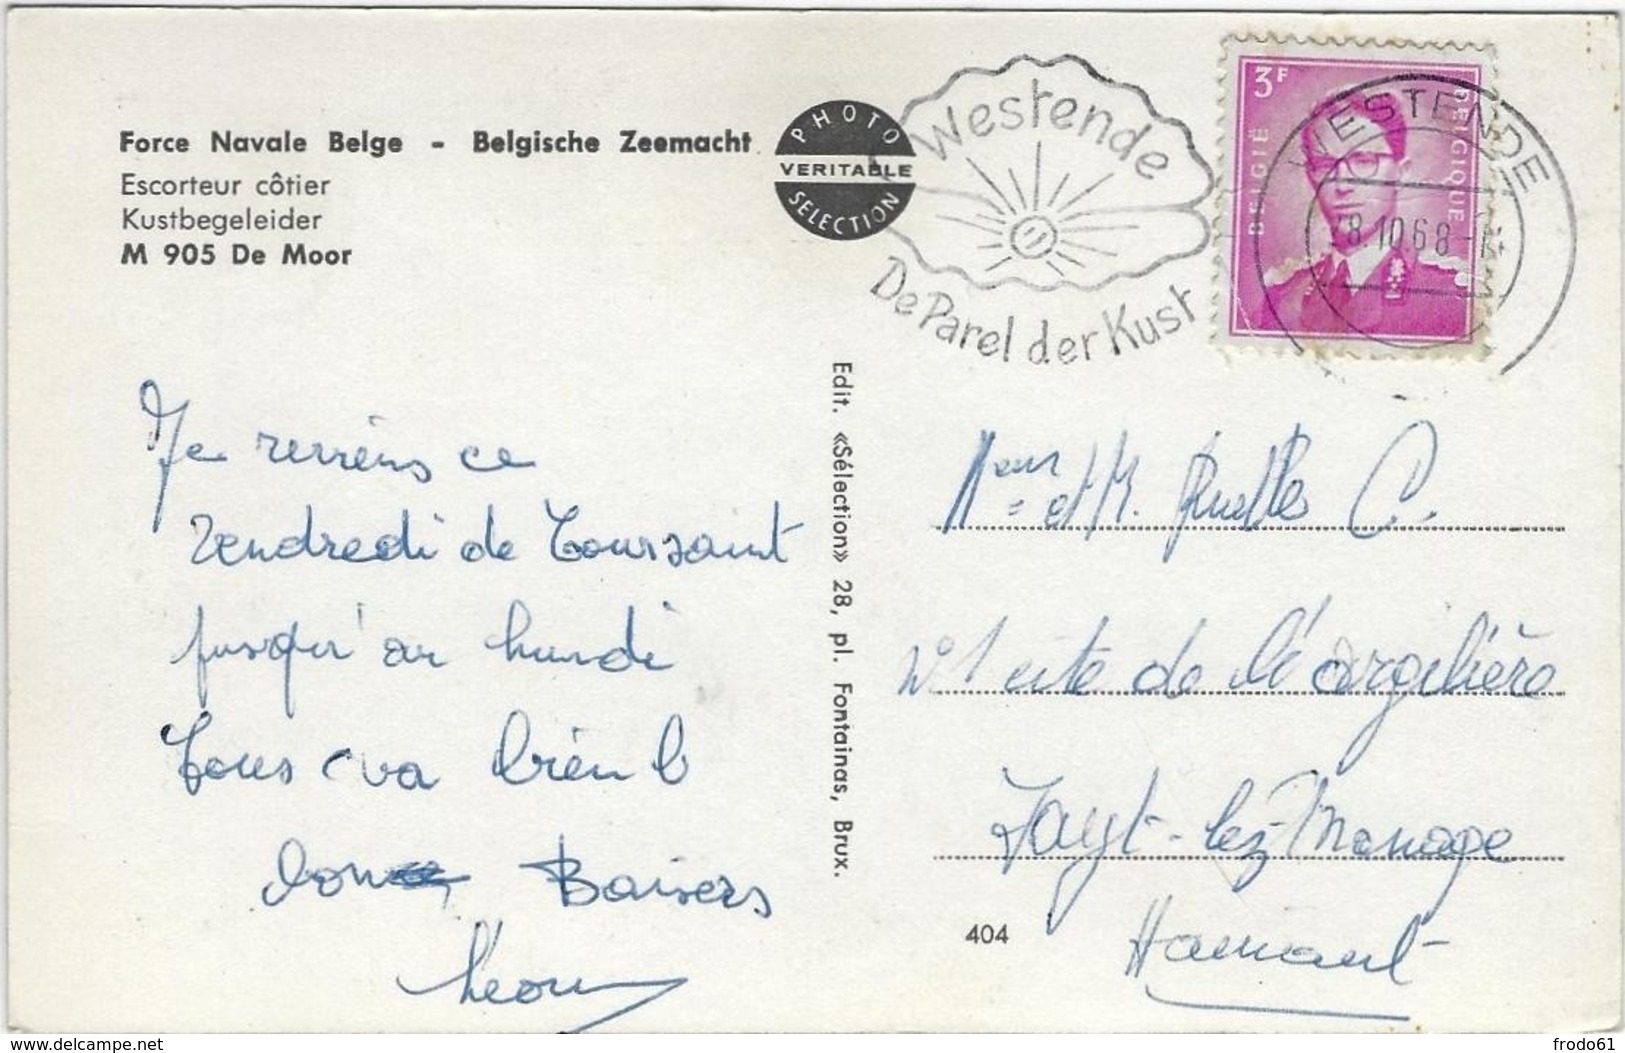 Force Navale Belge - Belgische Zeemacht
Escorteur côtier
Kustbegeleider
M 905 De Moor
PHOTO
VERITABLE
SELECTION
Westende
De Parel der Kust
3F
BELGIË
BELGIQUE
WESTENDE
8.10.68
Je reviens ce
vendredi de Toussaint
jusqu'au lundi
Tous va bien
Bon Baisers
Léon
Edit. «Sélection» 28, pl. Fontainas, Brux.
et M. Ruelles C.
N° 1 cité de l'argilière
Fayt-lez-Manage
Hainaut
404
delcampe.net
frodo61